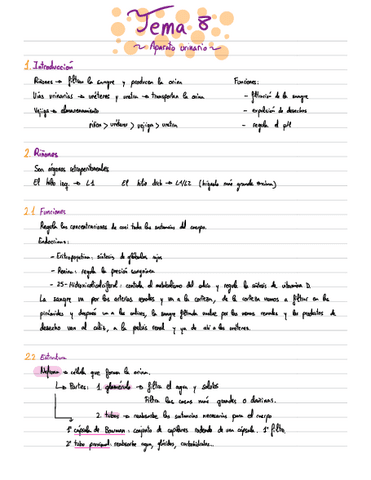 Tema 8
~ Aparato urinario ~
1. Introducción
Riñones → filtran la sangre y producen la orina
Funciones:
Vías urinarias → uréteres y uretra → transportan la orina
- filtración de la sangre
Vejiga → almacenamiento
- expulsión de desechos
riñón > uréteres > vejiga > uretra
- regula el pH
2. Riñones
Son órganos retroperitoneales
El hilio izq. → L1
El hilio dech → L1/L2 (hígado más grande encima)
2.1. Funciones
Regula las concentraciones de casi todas las sustancias del cuerpo.
Endocrinas:
- Eritropoyetina: síntesis de glóbulos rojos
- Renina: regula la presión sanguínea
- 25-Hidroxicolecalciferol: controla el metabolismo del calcio y regula la síntesis de vitamina D.
La sangre va por las arterias renales y va a la corteza, de la corteza vamos a filtrar en las
pirámides y después va a los cálices, la sangre filtrada vuelve por las venas renales y los productos de
desecho van al cáliz, a la pelvis renal y ya de ahí a los uréteres.
2.2. Estructura
Nefrona → célula que forma la orina.
↳ Partes: 1. glomérulo → filtra el agua y solutos
Filtra las cosas más grandes o dañinas.
2. tubos → reabsorbe las sustancias necesarias para el cuerpo
1º cápsula de Bowman: conjunto de capilares rodeado de una cápsula. 1º filtro.
2º tubo principal: reabsorbe agua, glúcidos, carbohidratos...